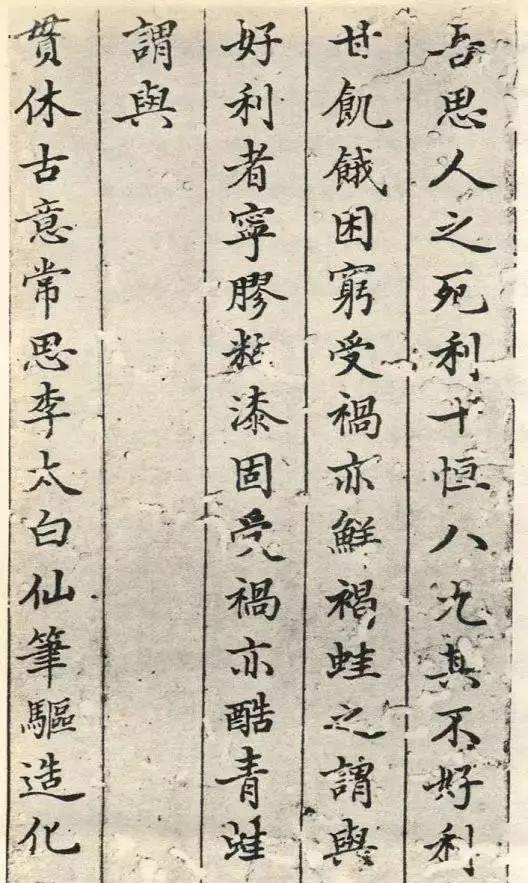 吾思人之死利十恒八九真不好利
甘飢餓困窮受禍亦鮮褐蛙之謂與
好利者寧膠粘漆固受禍亦酷青蛙
謂與
貫休古意常思李太白仙筆驅造化